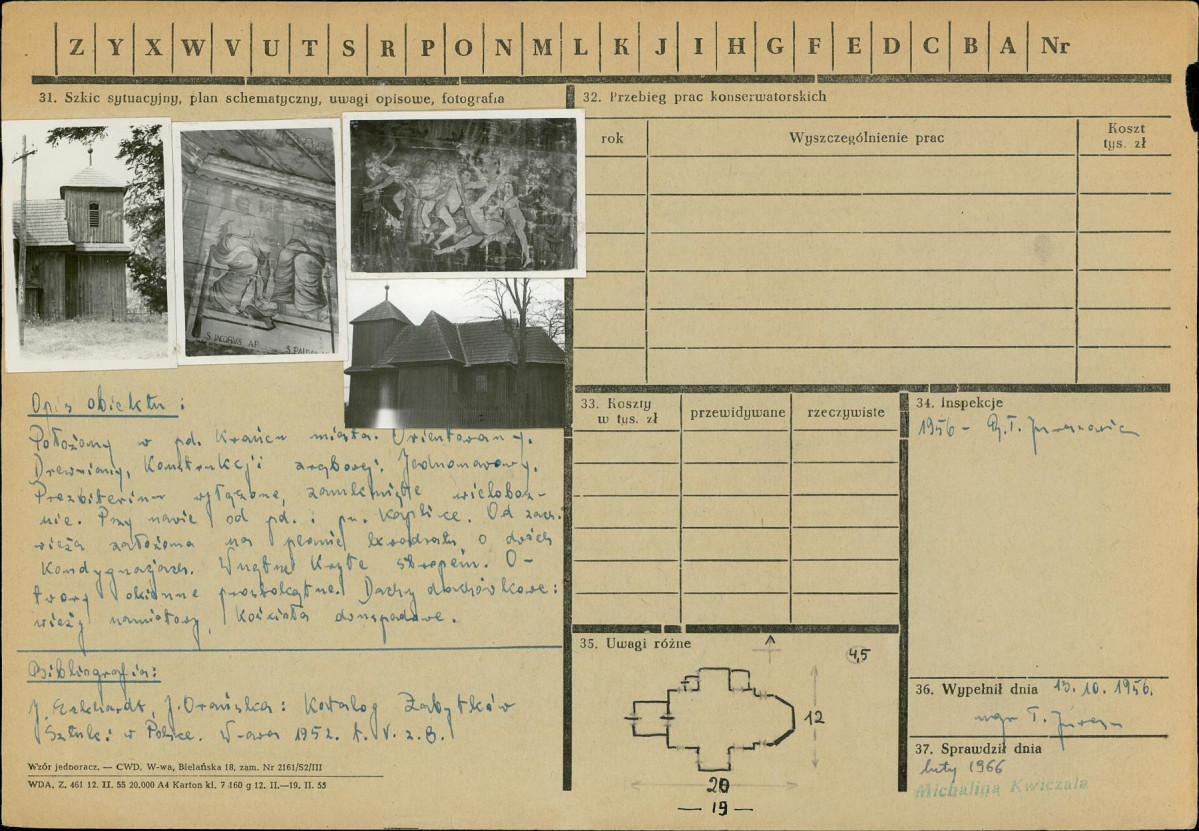 Z Y X W V U T S R P O N M L K J I H G F E D C B A Nr
31. Szkic sytuacyjny, plan schematyczny, uwagi opisowe, fotografia
S PAUL
Opis obiektu:
Położony w pd. krańcu miasta. Orientowany.
Drewniany, konstrukcji zrębowej. Jednonawowy.
Prezbiterium wyłączone, zamknięte wielobocz-
nie. Przy nawie od pd. i pn. kaplice. Od zach.
wieża założona na planie kwadratu o dwóch
kondygnacjach. Wnętrze kryte stropem. O-
twory okienne prostokątne. Dachy dachówkowe:
wieży namiotowy, kościoła dwuspadowe.
Bibliografia:
J. Orańska: Katalog Zabytków
Sztuki w Polsce. W-awa 1952. t. V. z. 8.
Wzór jednoracz. — CWD, W-wa, Bielańska 18, zam. Nr 2161/S2/III
WDA. Z. 461 12. II. 55 20.000 A4 Karton kl. 7 160 g 12. II.—19. II. 55
32. Przebieg prac konserwatorskich
rok Wyszczególnienie prac Koszt
tys. zł
33. Koszty
w tys. zł przewidywane rzeczywiste
34. Inspekcje
1956 -
35. Uwagi różne
4,5
12
20
— 19 —
36. Wypełnił dnia 13. 10. 1956.
mgr T.
37. Sprawdził dnia
luty 1966
Michalina Kwiczala